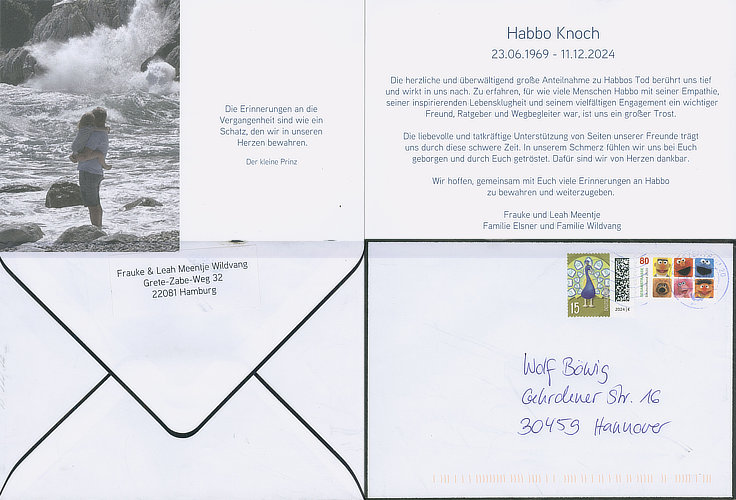 Die Erinnerungen an die
Vergangenheit sind wie ein
Schatz, den wir in unseren
Herzen bewahren.
Der kleine Prinz
Habbo Knoch
23.06.1969 - 11.12.2024
Die herzliche und überwältigend große Anteilnahme zu Habbos Tod berührt uns tief
und wirkt in uns nach. Zu erfahren, für wie viele Menschen Habbo mit seiner Empathie,
seiner inspirierenden Lebensklugheit und seinem vielfältigen Engagement ein wichtiger
Freund, Ratgeber und Wegbegleiter war, ist uns ein großer Trost.
Die liebevolle und tatkräftige Unterstützung von Seiten unserer Freunde trägt
uns durch diese schwere Zeit. In unserem Schmerz fühlen wir uns bei Euch
geborgen und durch Euch getröstet. Dafür sind wir von Herzen dankbar.
Wir hoffen, gemeinsam mit Euch viele Erinnerungen an Habbo
zu bewahren und weiterzugeben.
Frauke und Leah Meentje
Familie Elsner und Familie Wildvang
Frauke & Leah Meentje Wildvang
Grete-Zabe-Weg 32
22081 Hamburg
15
2024 | €
80
Wolf Böwig
Gehrdener Str. 16
30459 Hannover